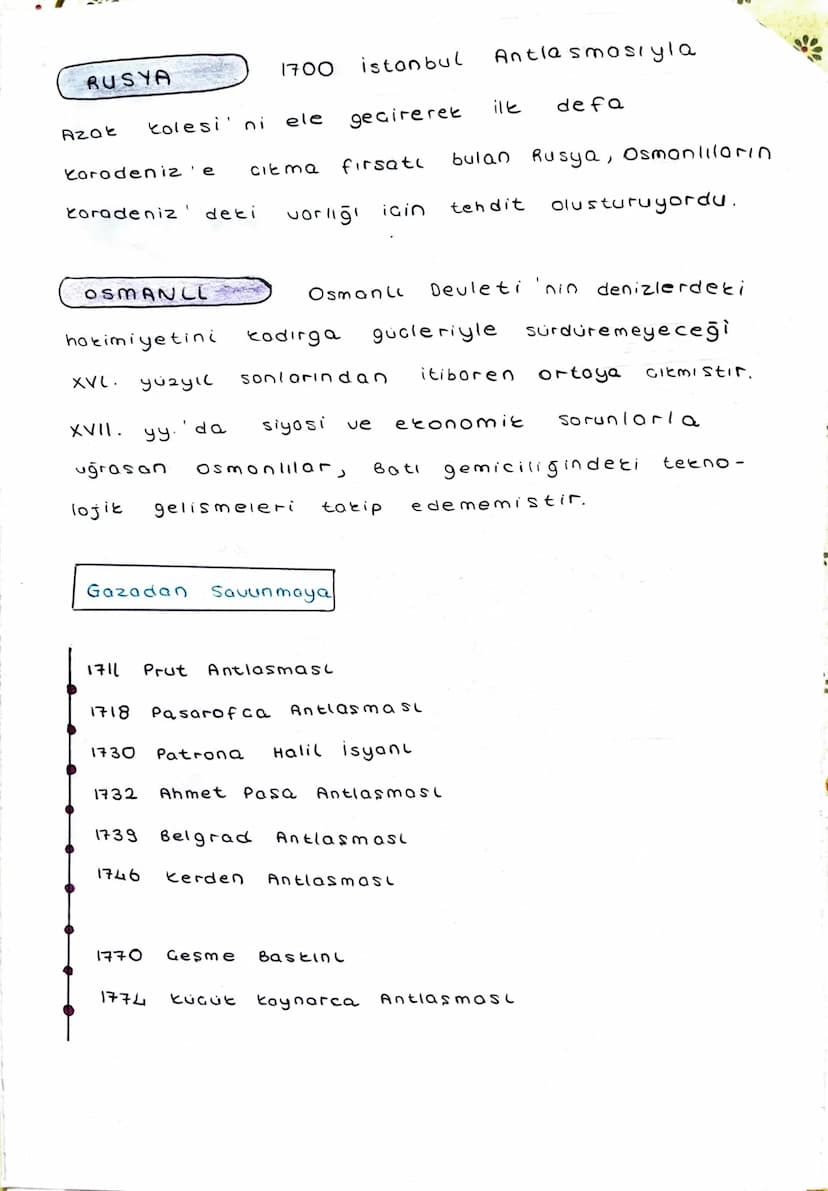 RUSYA 1700 istanbul Antlasmasıyla
Azak kalesi'ni ele geçirerek ilk defa
karadeniz'e cıkma fırsatı bulan Rusya, Osmanlıların
karadeniz'deki varlığı icin tehdit olusturuyordu.
OSMANLI Osmanlı Devleti'nin denizlerdeki
hakimiyetini kadırga gücleriyle sürdüremeyeceği
XVI. yüzyıl sonlarından itibaren ortaya cıkmıstır.
XVII. yy.'da siyasi ve ekonomik sorunlarla
uğrasan osmanlılar, Batı gemiciliğindeki tekno-
lojik gelismeleri takip edememistir.
Gazadan Savunmaya
1711 Prut Antlasması
1718 Pasarofca Antlaşması
1730 Patrona Halil İsyanı
1732 Ahmet Paşa Antlaşması
1739 Belgrad Antlaşması
1746 kerden Antlaşması
1770 Çeşme Baskını
1774 küçük kaynarca Antlaşması